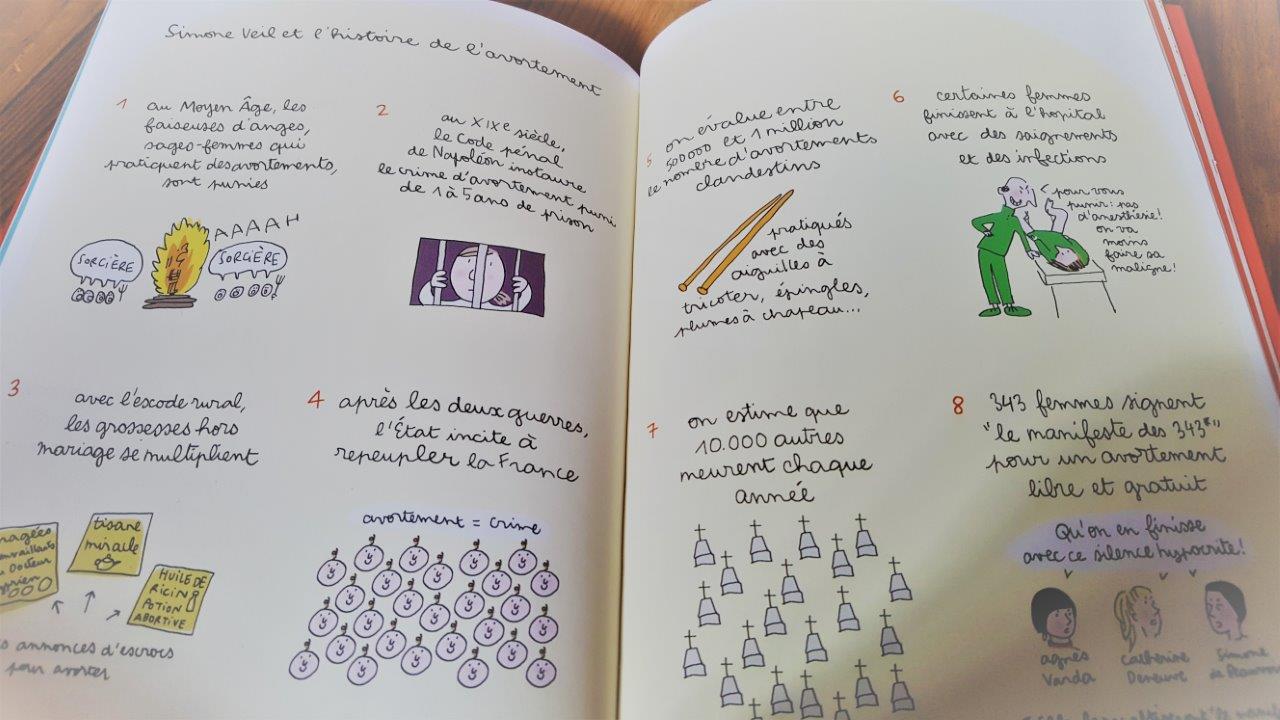 Simone Veil et l'histoire de l'avortement
1
au Moyen Âge, les
faiseuses d'anges,
sages-femmes qui
pratiquent des avortements,
sont punies
SORCIÈRE
AAAAH
SORCIÈRE
2
au XIXe siècle,
le Code pénal
de Napoléon instaure
le crime d'avortement puni
de 1 à 5 ans de prison
3
avec l'exode rural,
les grossesses hors
mariage se multiplient
Docteur
tisane
miracle
HUILE DE
RICIN
POTION
ABORTIVE
annonces d'escrocs
pour avorter
4
après les deux guerres,
l'État incite à
repeupler la France
avortement = crime
5
on évalue entre
500000 et 1 million
le nombre d'avortements
clandestins
pratiqués
avec des
aiguilles à
tricoter, épingles,
plumes à chapeau...
6
certaines femmes
finissent à l'hopital
avec des saignements
et des infections
pour vous
punir: pas
d'anesthésie!
on va
moins
faire sa
maligne!
7
on estime que
10.000 autres
meurent chaque
année
8
343 femmes signent
"le manifeste des 343*"
pour un avortement
libre et gratuit
Qu'on en finisse
avec ce silence hypocrite!
agnès
Varda
Catherine
Deneuve
Simone
de